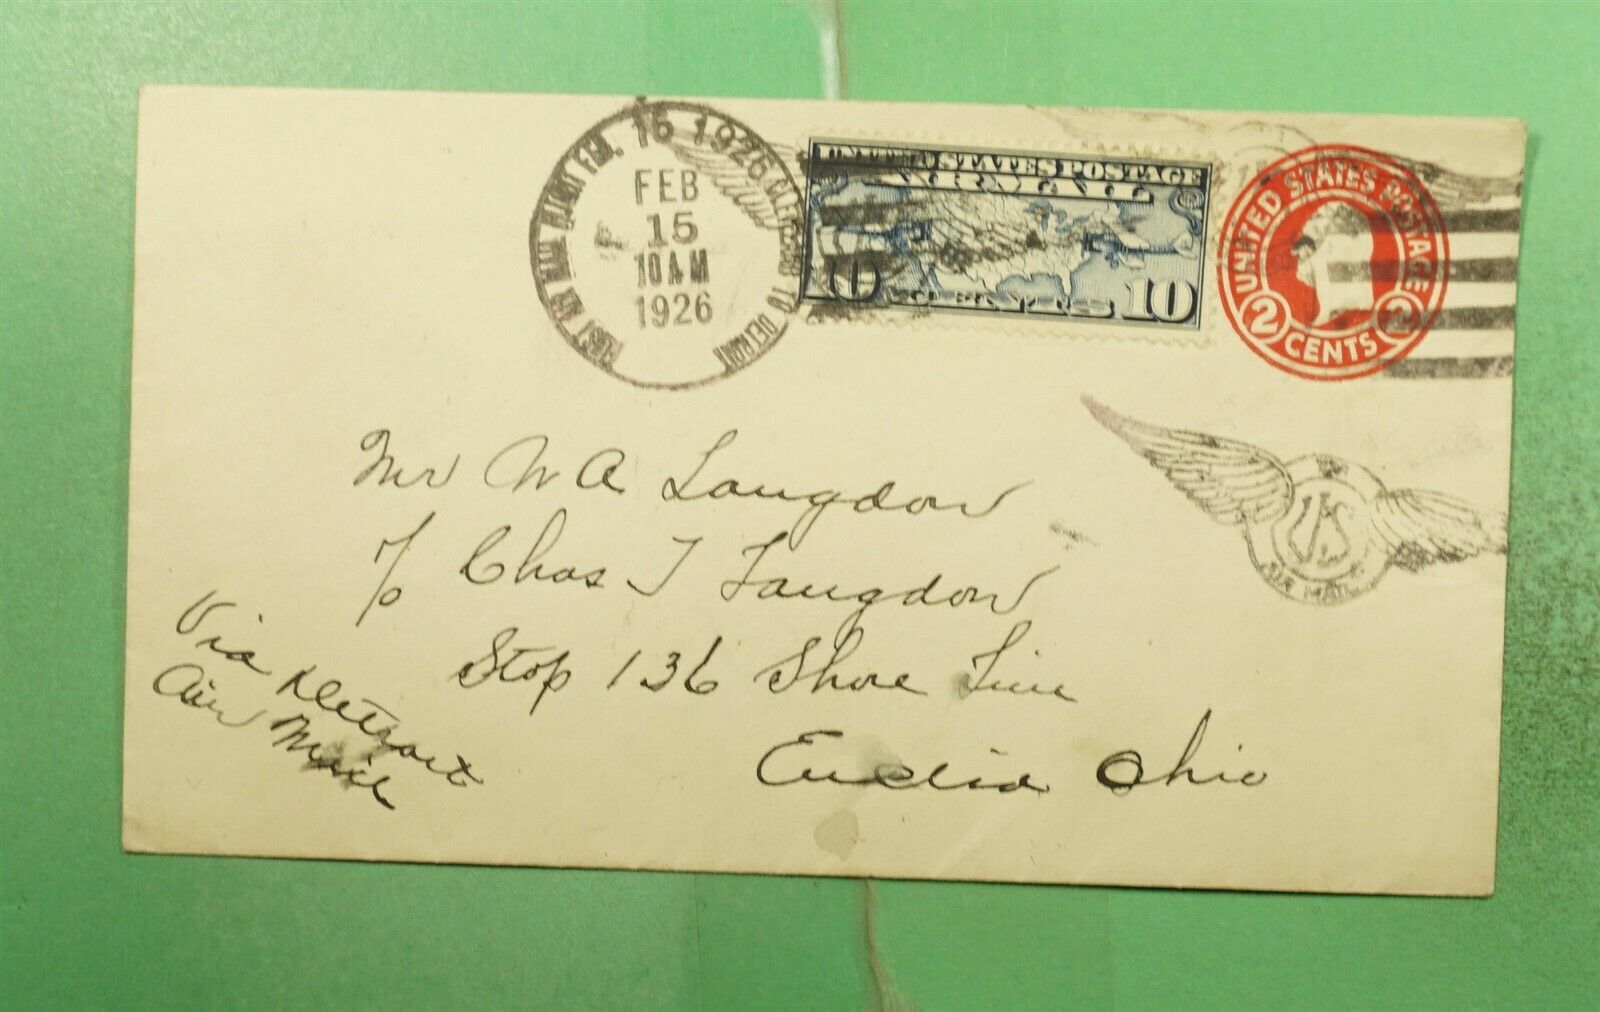 FIRST AIR MAIL FLIGHT FEB. 15 1926 CHICAGO TO DETROIT
FEB
15
10 AM
1926
UNITED STATES POSTAGE
AIR MAIL
10 CENTS 10
UNITED STATES POSTAGE
2 CENTS 2
US
AIR MAIL
Mr W A Langdon
c/o Chas T Langdon
Stop 136 Shore Line
Euclid Ohio
Via Detroit
Air Mail